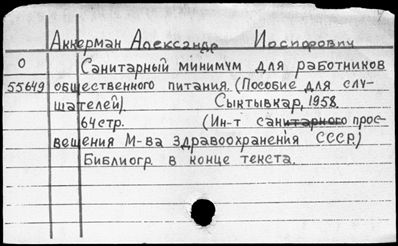 Аккерман Александр Иосифович
О Санитарный минимум для работников
55649 общественного питания. (Пособие для слу-
шателей) Сыктывкар, 1958.
64 стр. (Ин-т санитарного прос-
вещения М-ва здравоохранения СССР)
Библиогр. в конце текста.